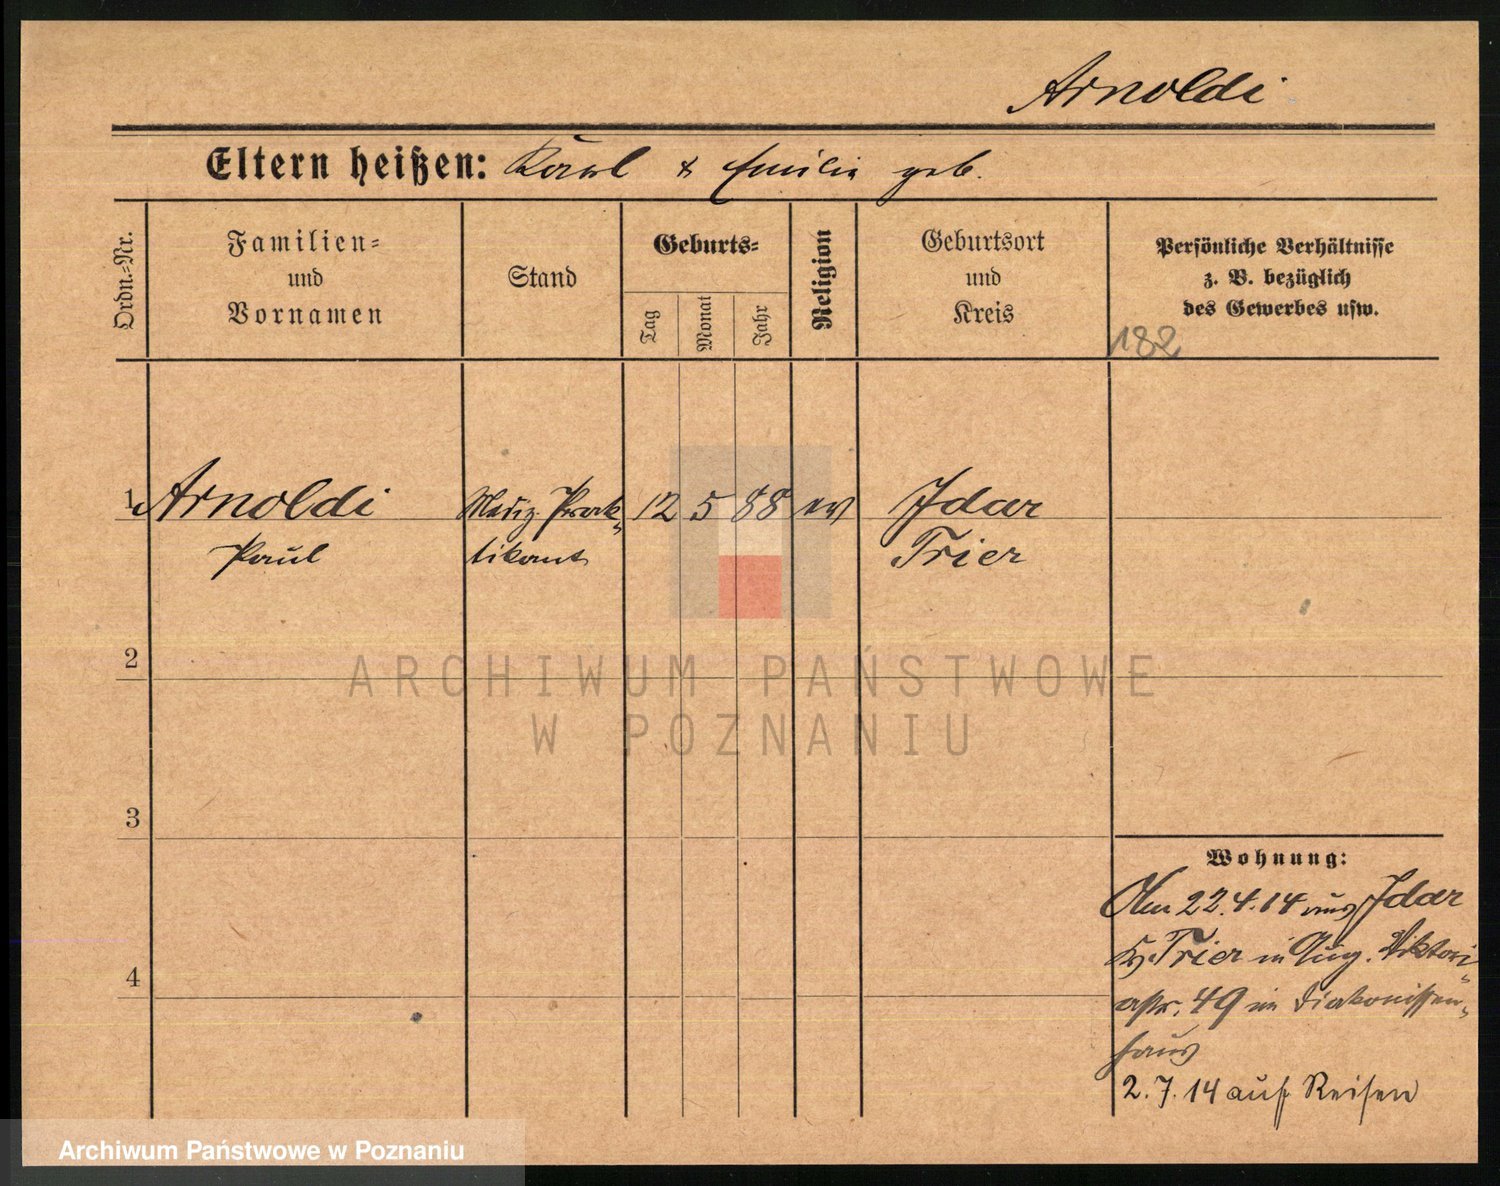 Arnoldi
Eltern heißen: Karl & Emilie geb.
Ordn.-Nr.
Familien-
und
Vornamen
Stand
Geburts-
Tag
Monat
Jahr
Religion
Geburtsort
und
Kreis
Persönliche Verhältnisse
z. B. bezüglich
des Gewerbes usw.
182
1 Arnoldi Mediz. Prak- 12 5 88 ev Idar
Paul tikant Trier
2
ARCHIWUM PAŃSTWOWE
W POZNANIU
3
Wohnung:
Am 22.4.14 aus Idar
Kr. Trier in Aug. Viktori-
4
astr. 49 im Diakonissen-
haus
2.7.14 auf Reisen
Archiwum Państwowe w Poznaniu